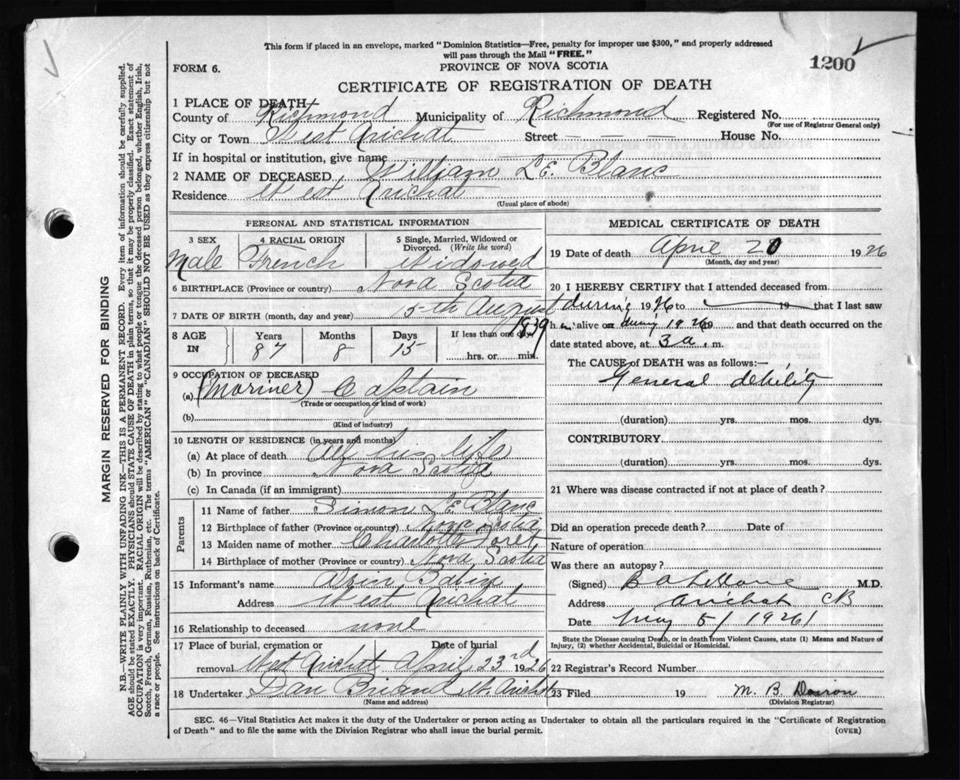 This form if placed in an envelope, marked "Dominion Statistics—Free, penalty for improper use $300," and properly addressed
will pass through the Mail "FREE."
1200
FORM 6.
PROVINCE OF NOVA SCOTIA
CERTIFICATE OF REGISTRATION OF DEATH
1 PLACE OF DEATH
County of Richmond Municipality of Richmond Registered No.
(For use of Registrar General only)
City or Town West Arichat Street — — House No.
If in hospital or institution, give name
2 NAME OF DECEASED William Le Blanc
Residence West Arichat
(Usual place of abode)
PERSONAL AND STATISTICAL INFORMATION
3 SEX
Male
4 RACIAL ORIGIN
French
5 Single, Married, Widowed or
Divorced. (Write the word)
Widowed
6 BIRTHPLACE (Province or country) Nova Scotia
7 DATE OF BIRTH (month, day and year) 15th August
1839
8 AGE
IN
Years
87
Months
8
Days
15
If less than one day
hrs. or min.
9 OCCUPATION OF DECEASED
(a) (Mariner) Captain
(Trade or occupation or kind of work)
(b)
(Kind of industry)
10 LENGTH OF RESIDENCE (in years and months)
(a) At place of death All his life
(b) In province Nova Scotia
(c) In Canada (if an immigrant)
Parents
11 Name of father Simon Le Blanc
12 Birthplace of father (Province or country) Nova Scotia
13 Maiden name of mother Charlotte Foret
14 Birthplace of mother (Province or country) Nova Scotia
15 Informant's name
Address West Arichat
16 Relationship to deceased none
17 Place of burial, cremation or
removal West Arichat
Date of burial
April 23rd 1926
18 Undertaker Dan Briand W. Arichat
(Name and address)
MEDICAL CERTIFICATE OF DEATH
19 Date of death April 20 1926
(Month, day and year)
20 I HEREBY CERTIFY that I attended deceased from
during 1926 to 19 that I last saw
h alive on during 1926 and that death occurred on the
date stated above, at 3 a. m.
The CAUSE OF DEATH was as follows:—
General debility
(duration) yrs. mos. dys.
CONTRIBUTORY.
(duration) yrs. mos. dys.
21 Where was disease contracted if not at place of death?
Did an operation precede death? Date of
Nature of operation
Was there an autopsy?
(Signed) M.D.
Address Arichat CB
Date May 5/1926/
State the Disease causing Death, or in death from Violent Causes, state (1) Means and Nature of
Injury, (2) whether Accidental, Suicidal or Homicidal.
22 Registrar's Record Number
23 Filed 19 M. B.
(Division Registrar)
SEC. 46—Vital Statistics Act makes it the duty of the Undertaker or person acting as Undertaker to obtain all the particulars required in the "Certificate of Registration
of Death" and to file the same with the Division Registrar who shall issue the burial permit.
(OVER)
MARGIN RESERVED FOR BINDING
N.B.—WRITE PLAINLY WITH UNFADING INK—THIS IS A PERMANENT RECORD. Every item of information should be carefully supplied.
AGE should be stated EXACTLY. PHYSICIANS should STATE CAUSE OF DEATH in plain terms, so that it may be properly classified. Exact statement of
OCCUPATION is very important. RACIAL ORIGIN will be described by stating to what people or tongue the deceased person belonged, whether English, Irish,
Scotch, French, German, Russian, Ruthenian, etc. The terms "AMERICAN" or "CANADIAN" SHOULD NOT BE USED as they express citizenship but not
a race or people. See instructions on back of Certificate.